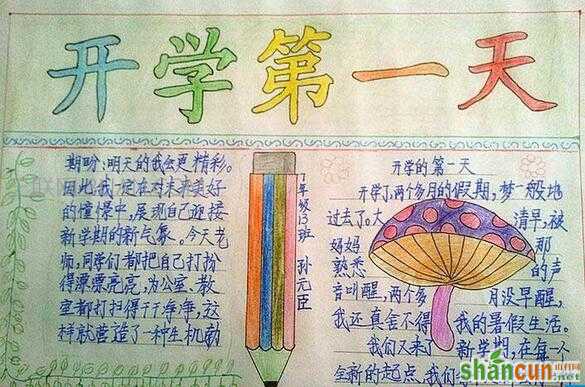 开学第一天
期盼:明天的我会更精彩。
因此,我一定在对未来美好
的憧憬中,展现自己迎接
新学期的新气象。今天老
师,同学们都把自己打扮
得漂漂亮亮,办公室、教
室都打扫得干干净净,这
样就营造了一种生机勃
年级13班 孙元臣
开学的第一天
开学了,两个多月的假期,梦一般地
过去了。大 清早,被
妈妈 那
熟悉 的声
音叫醒,两个多 月没早醒,
我还真舍不得 我的暑假生活。
我们又来了 新学期,在每一
全新的起点,我们
shancun
.net